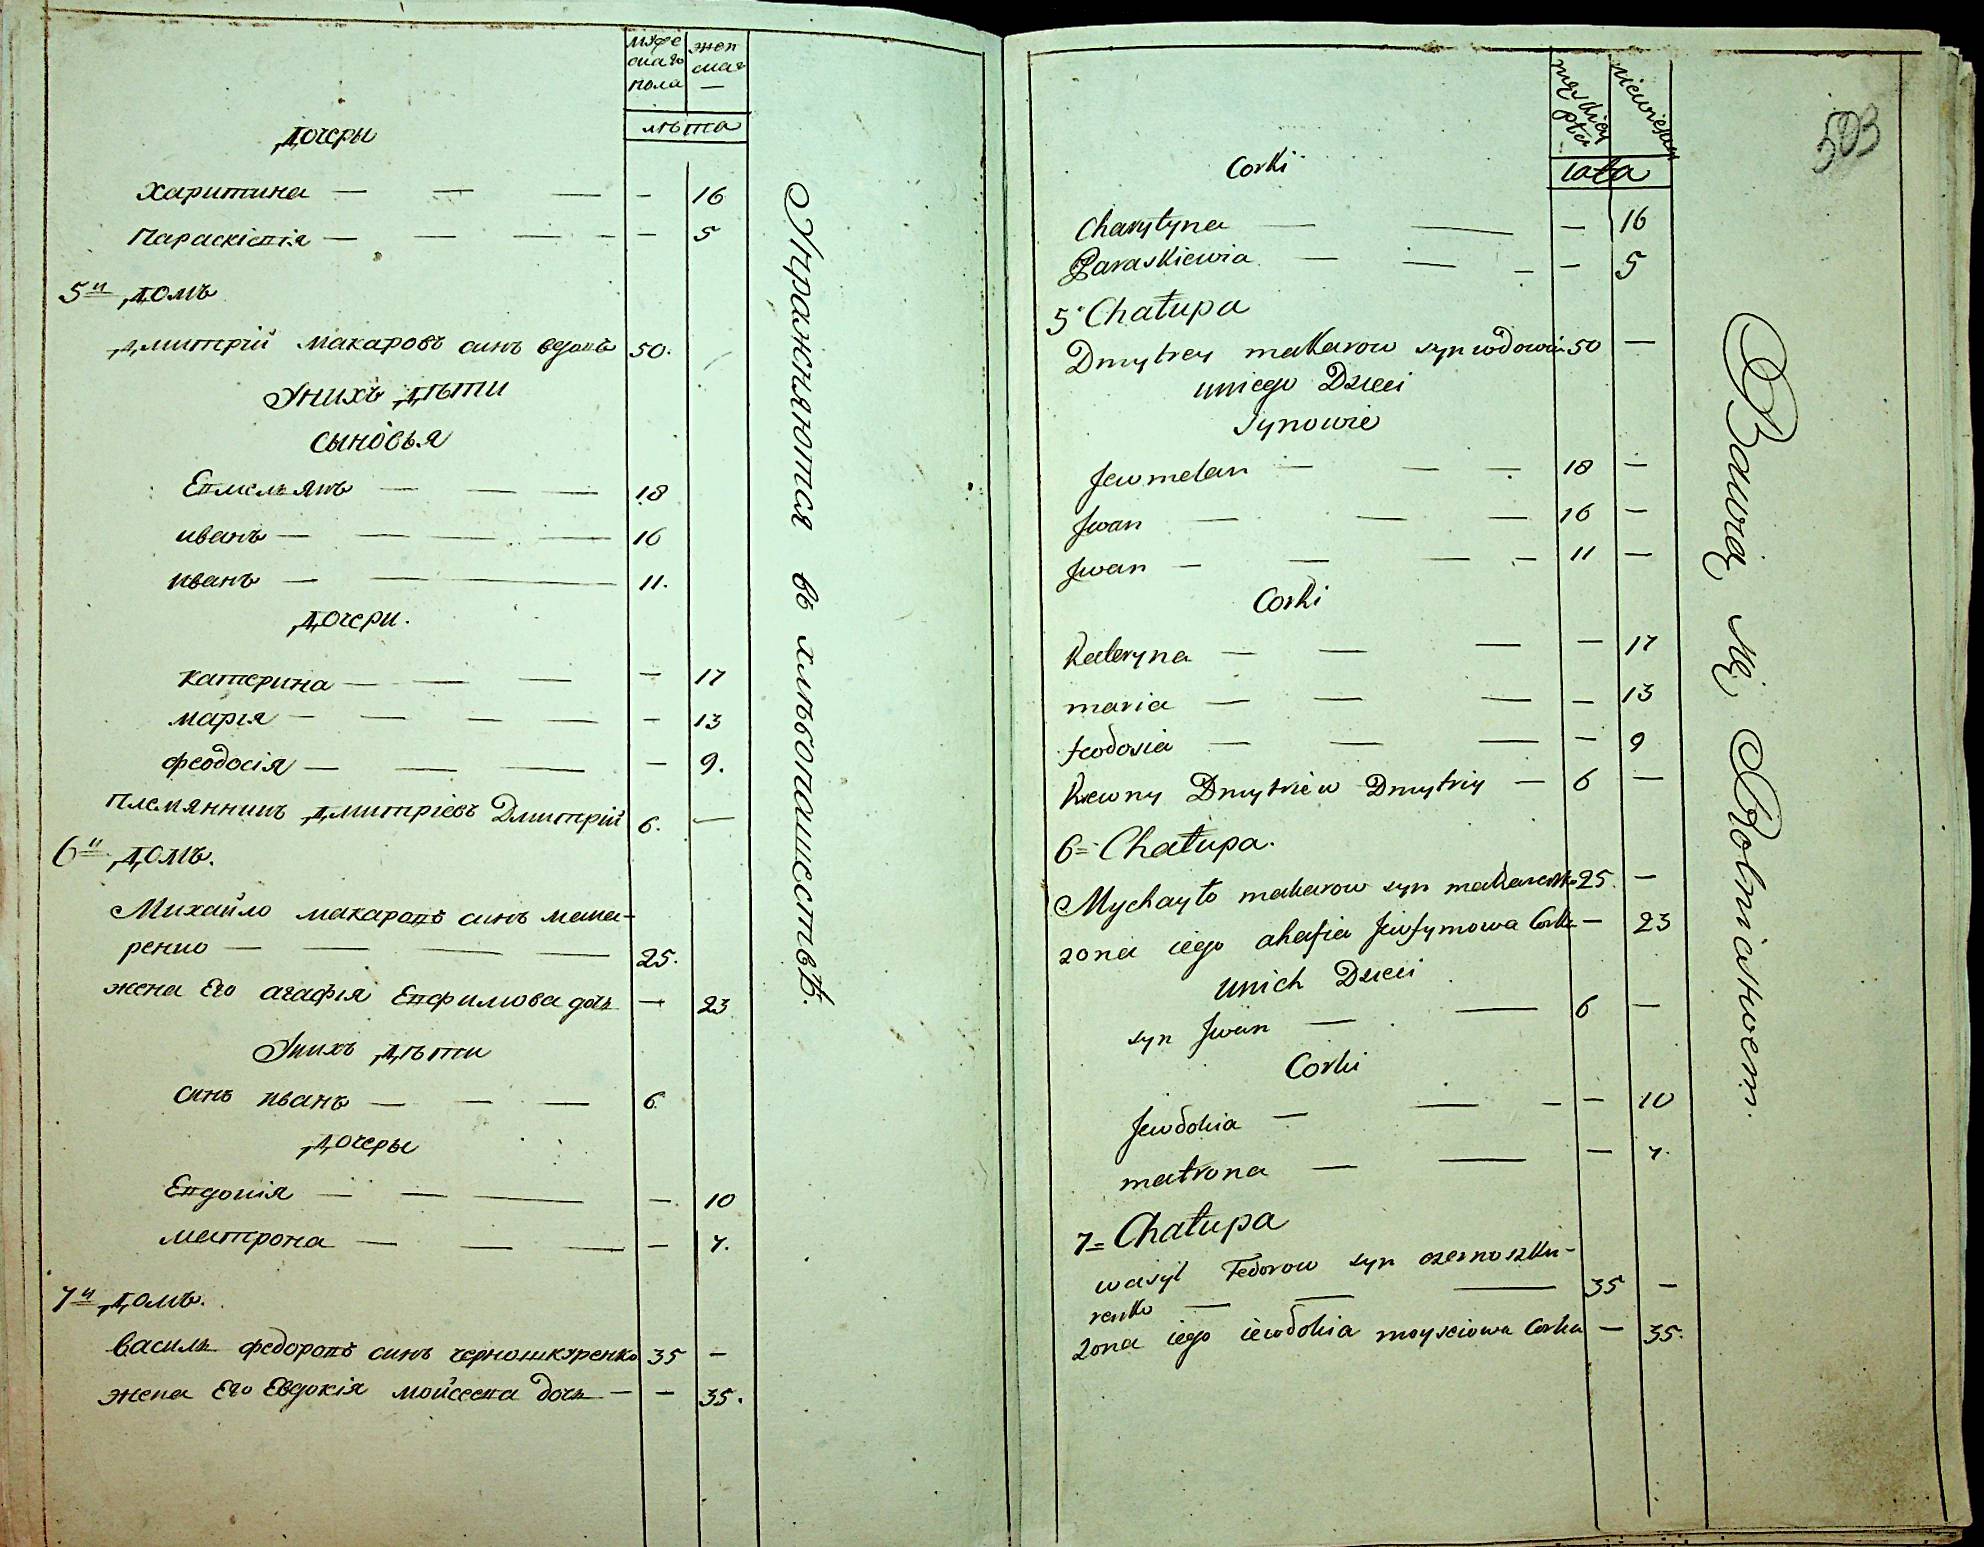 мужескаго пола
женскаго
лѣта
дочеры
Харитина — — — — 16
Параскіевія — — — — — 5
5й домъ
дмитрій макаровъ синъ вдовъ 50.
Унихъ дѣти
сыновья
Евмельянъ — — — 18
иванъ — — — — 16
иванъ — — 11.
дочери.
катерина — — — — 17
марія — — — — — 13
феодосія — — — — 9.
племянникъ дмитріевъ Дмитрій 6. —
6й домъ.
Михайло макаровъ синъ мака-
ренко — — — 25.
жена Его агафія Евфимова дочь — 23
Унихъ дѣти
синъ иванъ — — — 6.
дочеры
Евдокія — — — — 10
матрона — — — — 7.
7й домъ.
василь федоровъ синъ черношкуренко 35 —
жена Его Евдокія мойсеева дочь — — 35.
Упражняются въ хлѣбопашествѣ.
503
męskiey płci
niewieskiey
lata
Corki
Charytyna — — — 16
Paraskiewia — — — — 5
5 Chałupa
Dmytrey makarow syn wdowiec 50 —
uniego Dzieci
Synowie
Jewmelan — — — 18 —
Jwan — — — 16 —
Jwan — — — — 11 —
Corki
Kateryna — — — — 17
maria — — — — 13
feodosia — — — — 9
Krewny Dmytriew Dmytriy — 6 —
6= Chałupa.
Mychayło makarow syn makarenko 25. —
zona iego ahafia Jewfymowa Corka — 23
unich Dzieci
syn Jwan — — 6 —
Corki
Jewdokia — — — — 10
matrona — — — 7.
7= Chałupa
wasyl Fedorow syn czernoszku-
renko — — — 35 —
zona iego iewdokia moyseiowa Corka — 35.
Bawią się Rolnictwem.